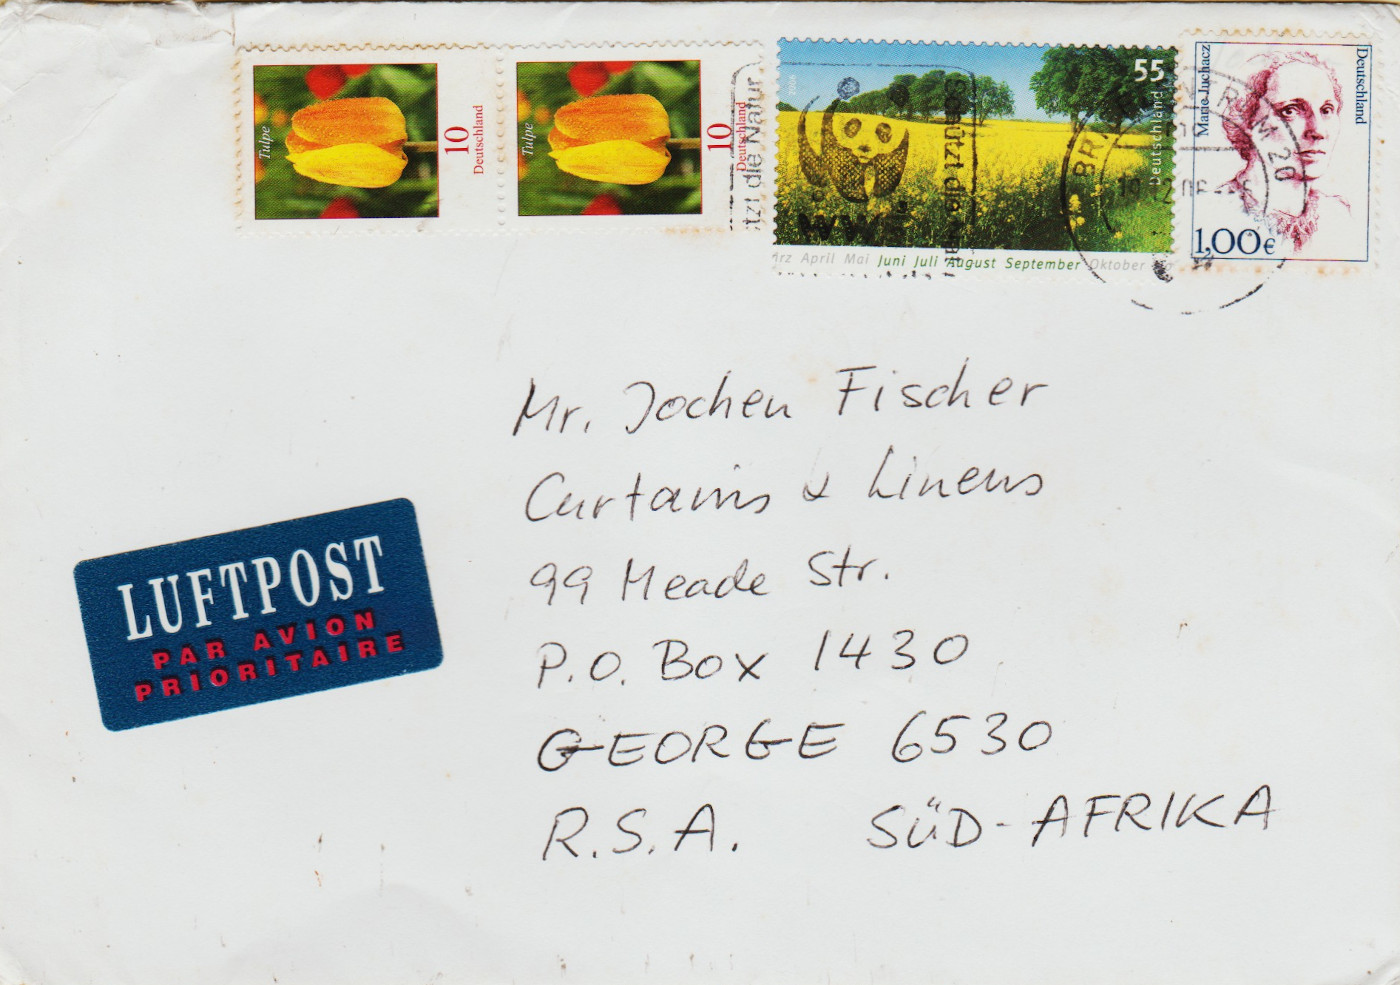 Tulpe
10
Deutschland
Tulpe
10
Deutschland
tzt die Natur
2006
WWF
55
Deutschland
ärz April Mai Juni Juli August September Oktober
Marie Juchacz
Deutschland
1,00€
20
Mr. Jochen Fischer
Curtains & Linens
99 Meade Str.
P.O. Box 1430
GEORGE 6530
R.S.A. SÜD-AFRIKA
LUFTPOST
PAR AVION
PRIORITAIRE